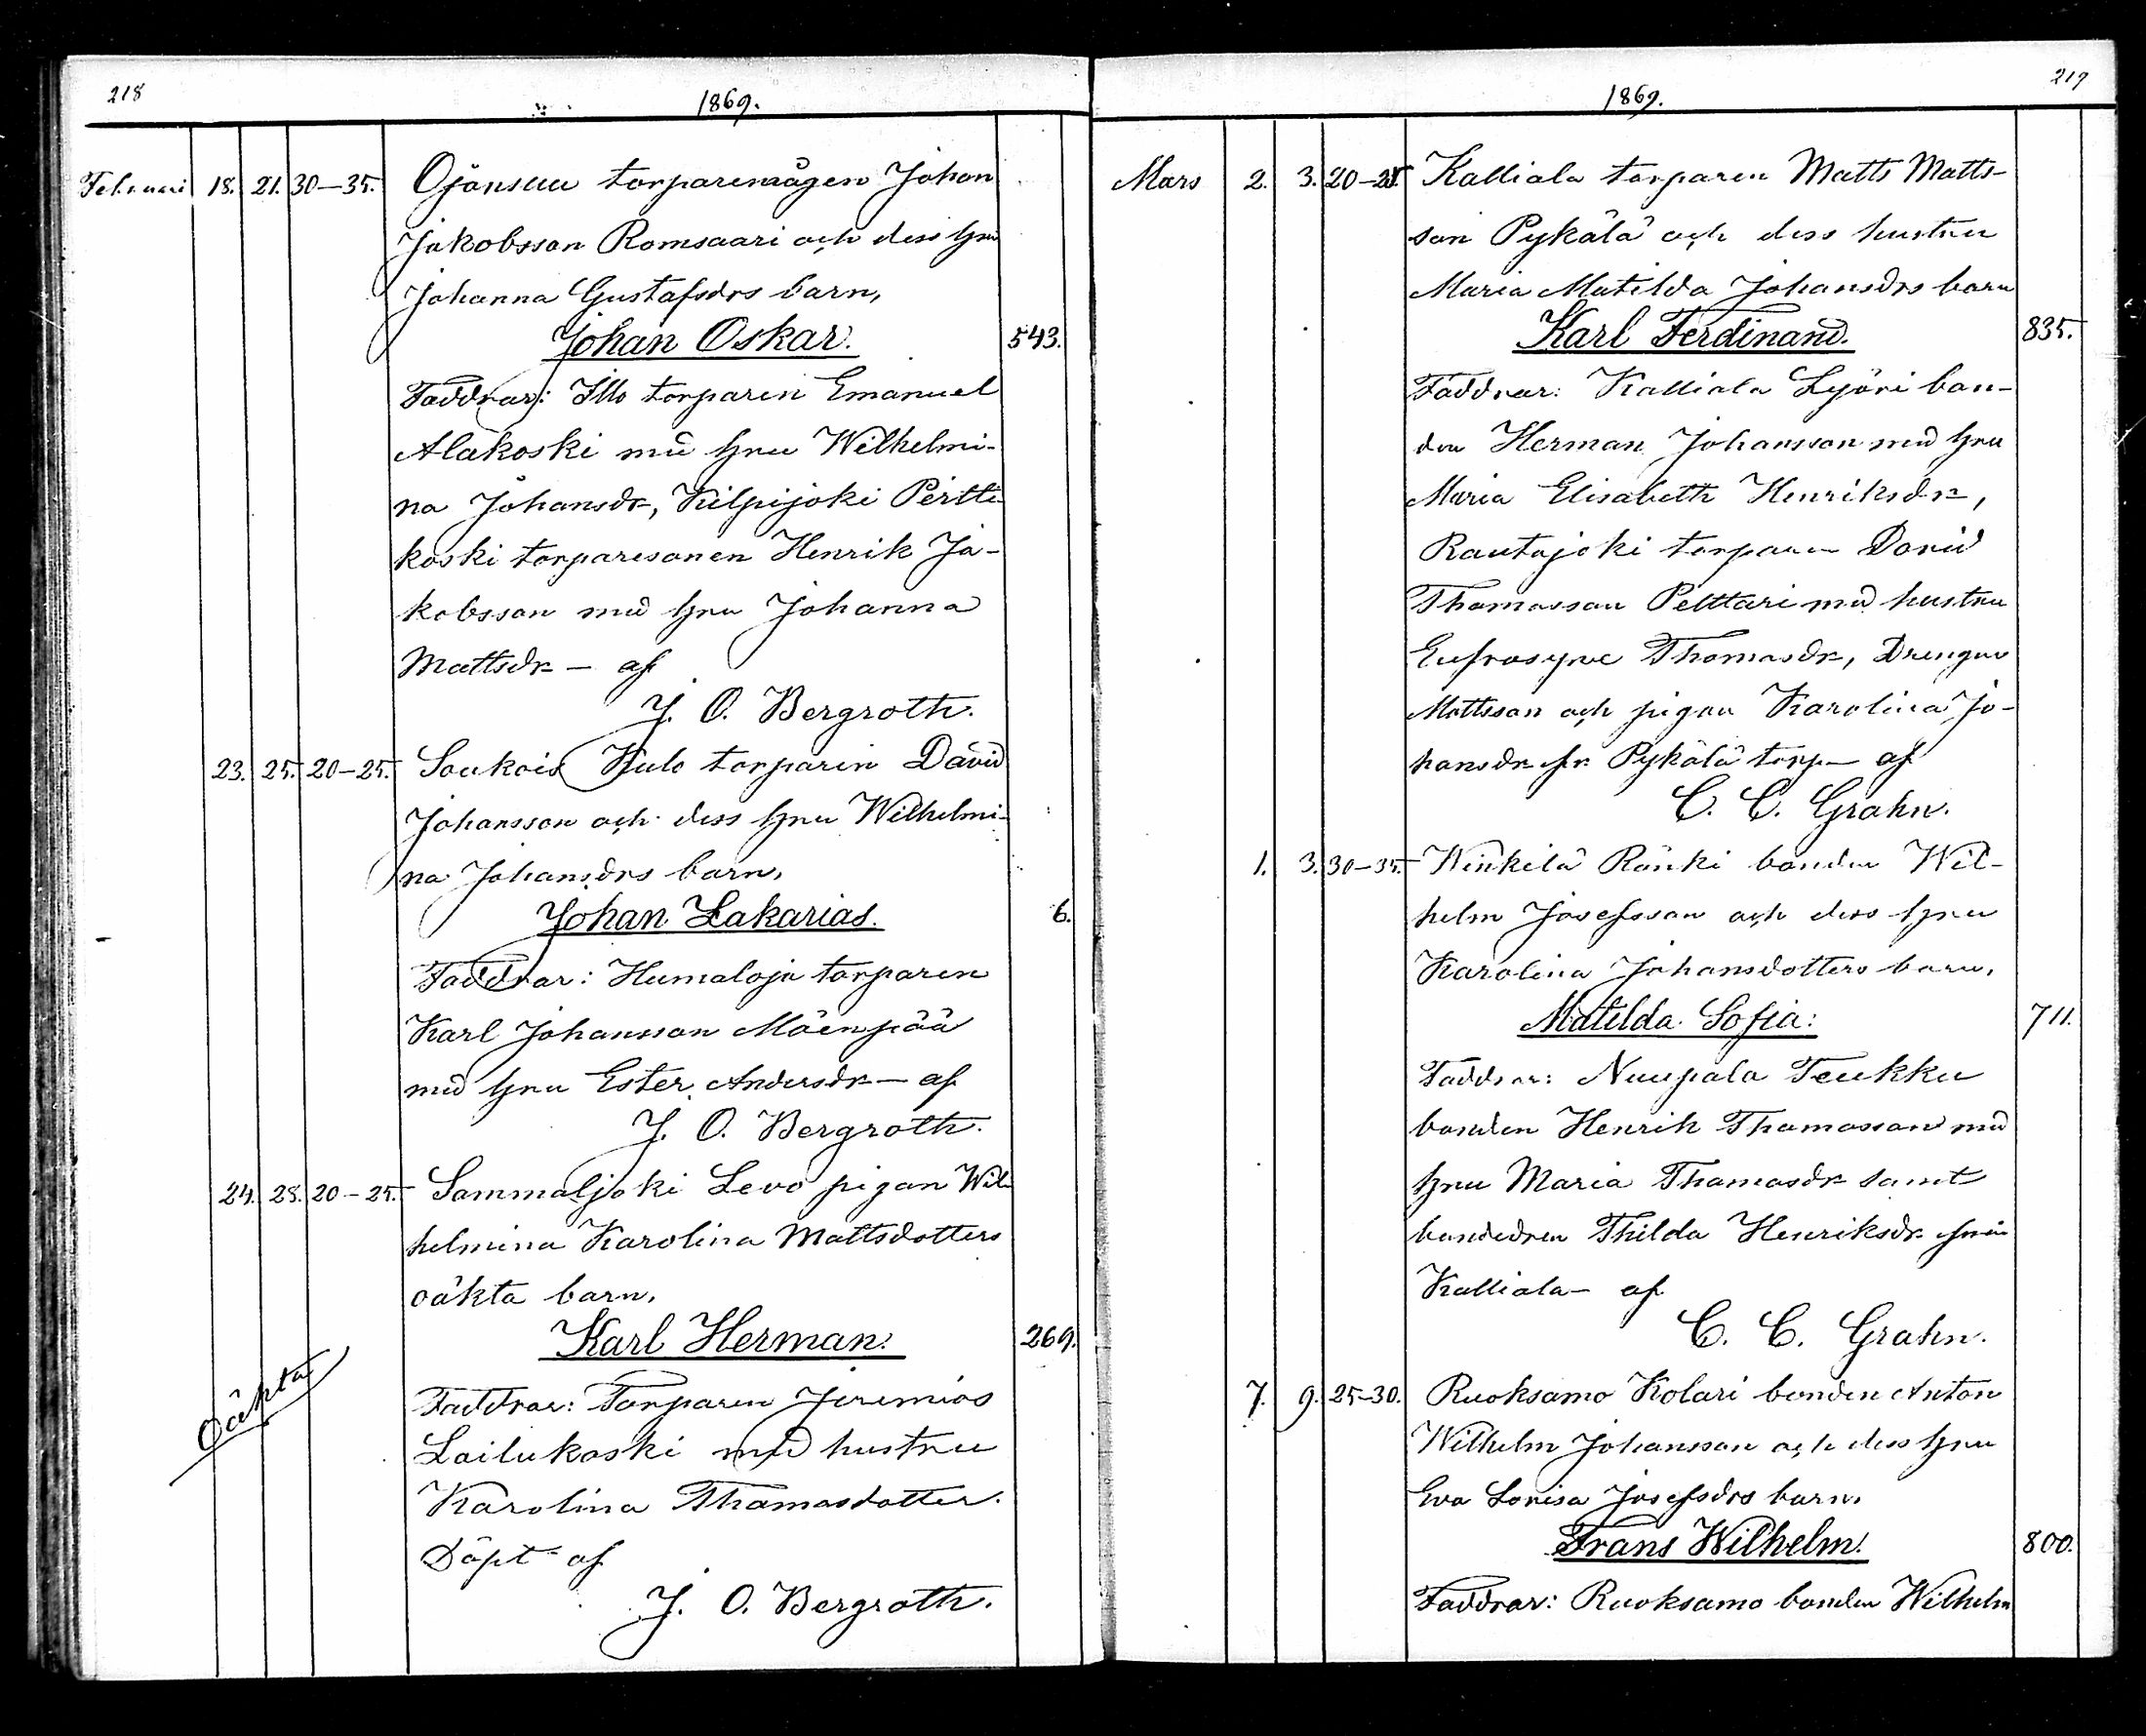 218
1869.
Februari 18. 21. 30–35. Ojansuu torparemågen Johan
Jakobsson Romsaari och dess hru
Johanna Gustafsdrs barn,
Johan Oskar. 543.
Faddrar: Illo torparen Emanuel
Alakoski med hru Wilhelmi-
na Johansdr, Kilpijoki Pertti-
koski torparesonen Henrik Ja-
kobsson med hru Johanna
Mattsdr – af
J. O. Bergroth.
23. 25. 20–25. Soukois Hulo torparen David
Johansson och dess hru Wilhelmi-
na Johansdrs barn,
Johan Zakarias. 6.
Faddrar: Humaloja torparen
Karl Johansson Mäenpää
med hru Ester Andersdr – af
J. O. Bergroth.
24. 28. 20–25. Sammaljoki Levo pigan Wil-
helmina Karolina Mattsdotters
oäkta barn,
Karl Herman. 269.
Oäkta
Faddrar: Torparen Jeremias
Lailukoski med hustru
Karolina Thomasdotter.
Döpt af
J. O. Bergroth.
219
1869.
Mars 2. 3. 20–25. Kalliala torparen Matts Matts-
son Pykälä och dess hustru
Maria Matilda Johansdrs barn
Karl Ferdinand. 835.
Faddrar: Kalliala Lyöri bon-
den Herman Johansson med hru
Maria Elisabeth Henriksdr,
Rautajoki torparen David
Thomasson Pelttari med hustru
Eufrosyne Thomasdr, Drengen
Mattsson och pigan Karolina Jo-
hansdr fr. Pykälä torp – af
C. C. Grahn.
1. 3. 30–35. Winkilä Ränki bonden Wil-
helm Josefsson och dess hru
Karolina Johansdotters barn,
Matilda Sofia: 711.
Faddrar: Nuupala Teukku
bonden Henrik Thomasson med
hru Maria Thomasdr samt
bondedren Thilda Henriksdr från
Kalliala – af
C. C. Grahn.
7. 9. 25–30. Ruoksamo Kolari bonden Anton
Wilhelm Johansson och dess hru
Eva Lovisa Josefsdrs barn,
Frans Wilhelm. 800.
Faddrar: Ruoksamo bonden Wilhelm